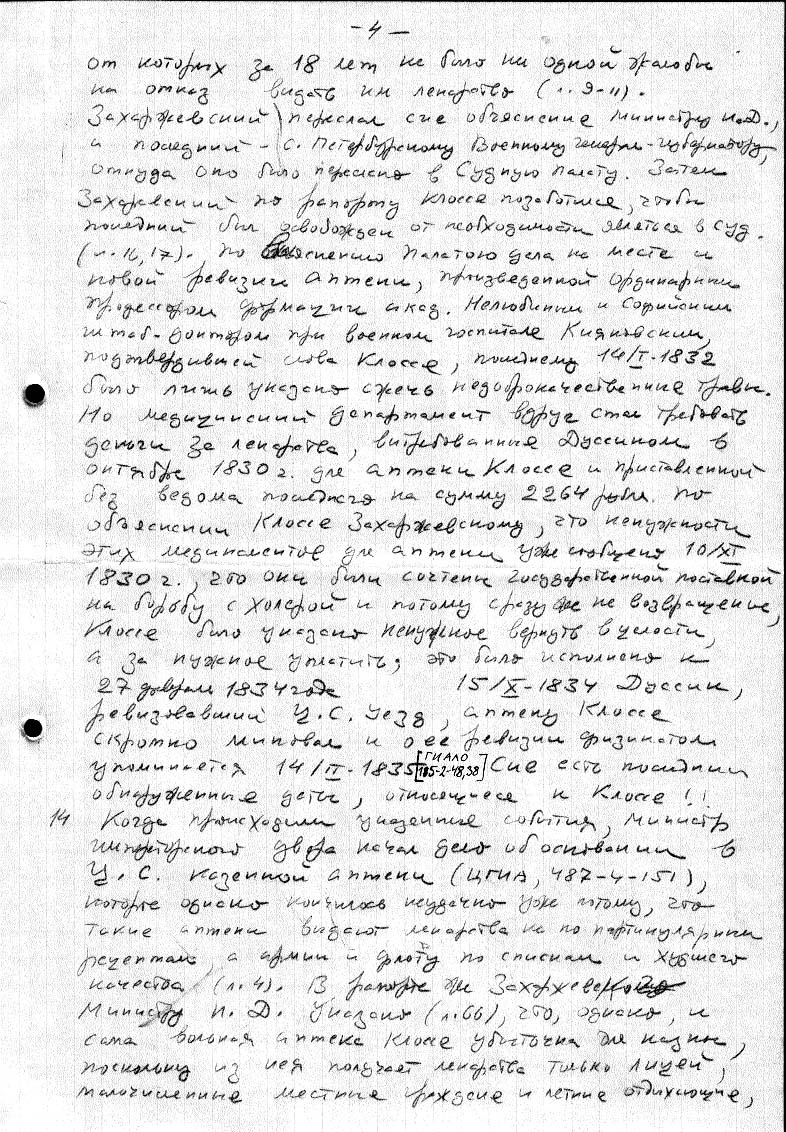 - 4 -
от которых за 18 лет не было ни одной жалобы
на отказ выдать им лекарство (л. 9-11).
Захаржевский переслал сие объяснение министру И.Д.,
и последний - С. Петербургскому Военному генерал-губернатору,
откуда оно было переслано в Судную палату. Затем
Захаржевский по рапорту Клоссе позаботился, чтобы
последний был освобожден от необходимости являться в суд.
(л. 16, 17). По выяснению Палатою дела на месте и
новой ревизии аптеки, произведенной ординарным
профессором фармации акад. Нелюбиным и Софийским
штаб-доктором при военном госпитале Кияновским,
подтвердившей слова Клоссе, последнему 14/I-1832
было лишь указано сжечь недоброкачественные травы.
Но медицинский департамент вдруг стал требовать
деньги за лекарства, вытребованные Дуссином в
октябре 1830 г. для аптеки Клоссе и приставленной
без ведома последнего на сумму 2264 рубл. По
объяснении Клоссе Захаржевскому, что ненужности
этих медикаментов для аптеки уже сообщено 10/XI
1830 г., что они были сочтены государственной поставкой
на борьбу с холерой и потому сразу же не возвращение,
Клоссе было указано ненужное вернуть в целости,
а за нужное уплатить; это было исполнено к
27 февраля 1834 года 15/X-1834 Дуссин,
ревизовавший Ц.С. уезд, аптеку Клоссе
скромно миновал и о ее ревизии физикатом
упоминается 14/II-1835 [ГИАЛО
185-2-48,38] Сие есть последний
обнаруженные даты, относящиеся к Клоссе!!
14 Когда происходили указанные события, министр
императорского двора начал дело об основании в
Ц.С. казенной аптеки (ЦГИА, 487-4-151),
которое однако кончилось неудачно уже потому, что
такие аптеки выдают лекарства не по партикулярным
рецептам а армии и флоту по спискам и худшего
качества (л. 4). В рапорте же Захаржевского
Министру И.Д. указано (л. 66), что, однако, и
сама вольная аптека Клоссе убыточна для казны,
поскольку из нея получает лекарства только лицей,
малочисленные местные граждане и летние отдыхающие,